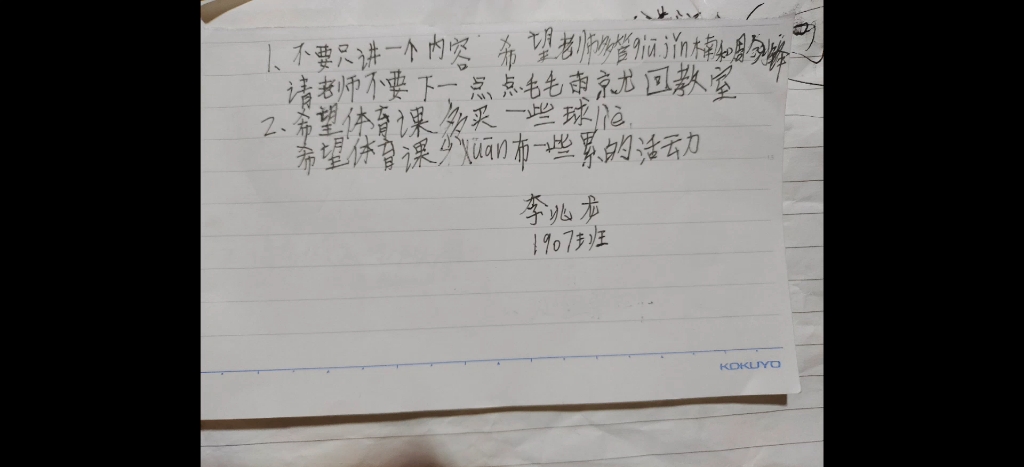 1、不要只讲一个内容 希望老师多管qiū jǐn楠和周
请老师不要下一点点毛毛雨就回教室
2、希望体育课多买一些球!
希望体育课少xuān布一些累的活动
李兆龙
1907班
KOKUYO